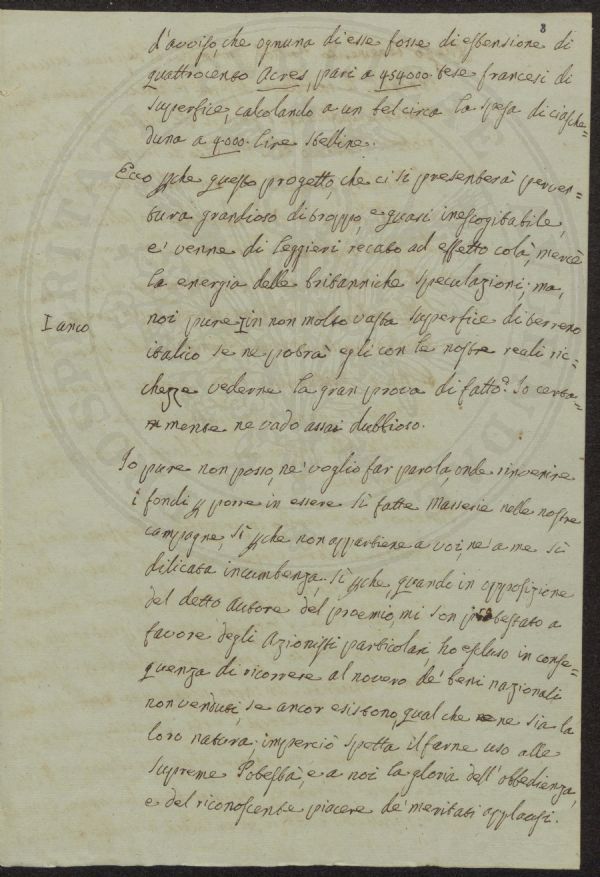 8
d'avviso, che ognuna di esse fosse di estensione di
quattrocento Acres, pari a 454000 tese francesi di
superfice, calcolando a un bel circa la spesa di ciasche=
duna a 4000 lire sterline.
Ecco pche questo progetto, che ci si presenterà perven=
tura grandioso di troppo, e quasi inescogitabile,
e' venne di leggieri recato ad effetto colà, mercè
la energia delle britanniche speculazioni; ma,
noi pure I in non molto vasta superfice di terreno
I anco
italico se ne potrà egli con le nostre reali ric=
chezze vederne la gran prova di fatto? Io certa=
mente ne vado assai dubbioso.
Io pure non posso, ne' voglio far parola, onde rinvenire
i fondi p porre in essere sì fatte Masserie nelle nostre
campagne, sì pche non appartiene a voi, ne' a me sì
dilicata incumbenza, sì pche, quando in opposizione
del detto Autore del proemio, mi son protestato a
favore degli Azionisti particolari ho escluso in conse=
quenza di ricorrere al novero de' beni nazionali
non venduti, se ancor esistono, qual che ne sia la
loro natura: imperciò spetta il farne uso alle
supreme Potestà, e a noi la gloria dell'obbedienza,
e del riconoscente piacere de' meritati applausi.